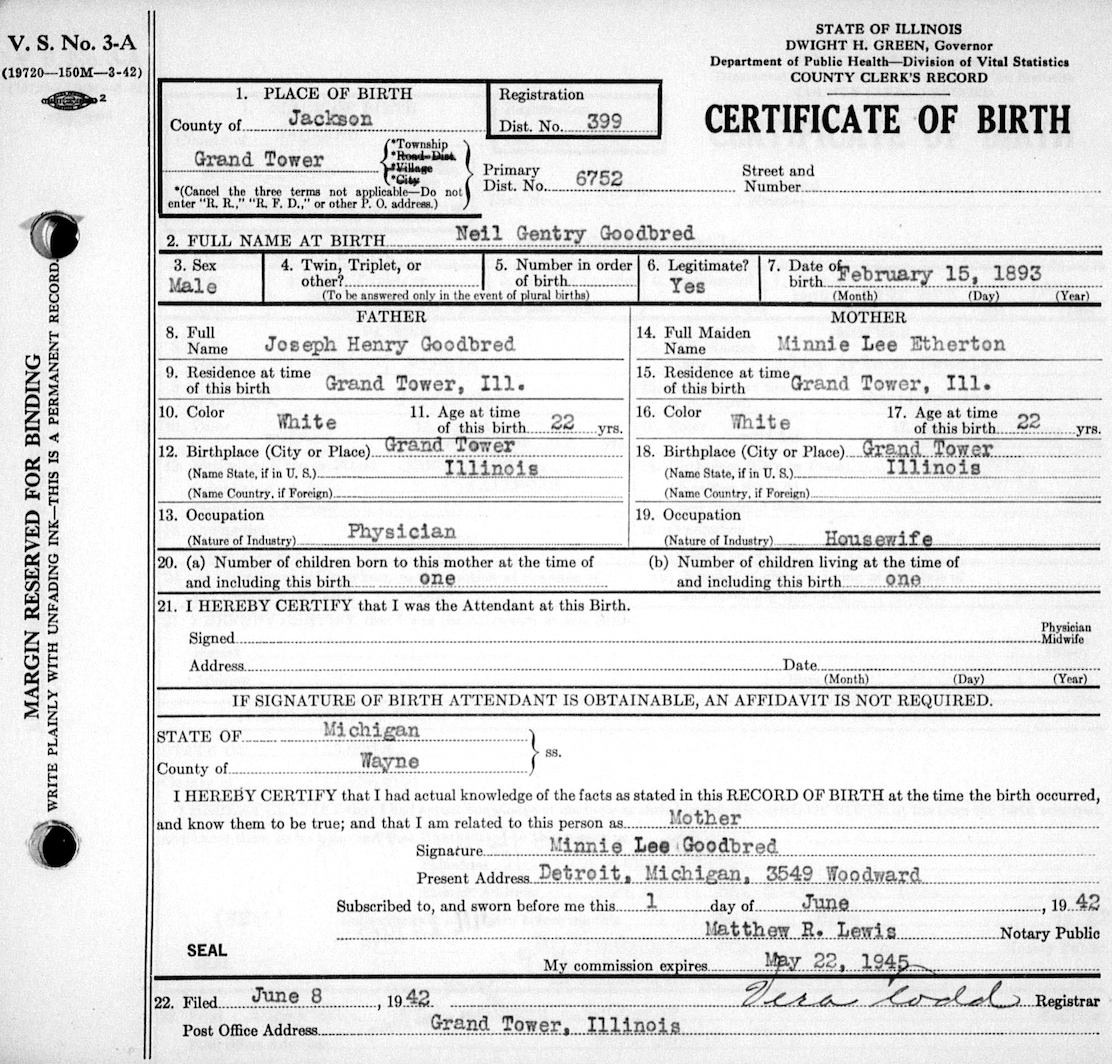 V. S. No. 3-A
(19720—150M—3-42)
2
STATE OF ILLINOIS
DWIGHT H. GREEN, Governor
Department of Public Health—Division of Vital Statistics
COUNTY CLERK'S RECORD
CERTIFICATE OF BIRTH
1. PLACE OF BIRTH
County of Jackson
Registration
Dist. No. 399
Grand Tower
*Township
*Road Dist.
*Village
*City
*(Cancel the three terms not applicable—Do not
enter "R. R.," "R. F. D.," or other P. O. address.)
Primary
Dist. No. 6752
Street and
Number
2. FULL NAME AT BIRTH Neil Gentry Goodbred
3. Sex
Male
4. Twin, Triplet, or
other?
5. Number in order
of birth
(To be answered only in the event of plural births)
6. Legitimate?
Yes
7. Date of
birth February 15, 1893
(Month) (Day) (Year)
FATHER
8. Full
Name Joseph Henry Goodbred
9. Residence at time
of this birth Grand Tower, Ill.
10. Color White
11. Age at time
of this birth 22 yrs.
12. Birthplace (City or Place) Grand Tower
(Name State, if in U. S.) Illinois
(Name Country, if Foreign)
13. Occupation
(Nature of Industry) Physician
MOTHER
14. Full Maiden
Name Minnie Lee Etherton
15. Residence at time
of this birth Grand Tower, Ill.
16. Color White
17. Age at time
of this birth 22 yrs.
18. Birthplace (City or Place) Grand Tower
(Name State, if in U. S.) Illinois
(Name Country, if Foreign)
19. Occupation
(Nature of Industry) Housewife
20. (a) Number of children born to this mother at the time of
and including this birth one
(b) Number of children living at the time of
and including this birth one
21. I HEREBY CERTIFY that I was the Attendant at this Birth.
Signed
Physician
Midwife
Address Date
(Month) (Day) (Year)
IF SIGNATURE OF BIRTH ATTENDANT IS OBTAINABLE, AN AFFIDAVIT IS NOT REQUIRED.
STATE OF Michigan
County of Wayne
ss.
I HEREBY CERTIFY that I had actual knowledge of the facts as stated in this RECORD OF BIRTH at the time the birth occurred,
and know them to be true; and that I am related to this person as Mother
Signature Minnie Lee Goodbred
Present Address Detroit, Michigan, 3549 Woodward
Subscribed to, and sworn before me this 1 day of June, 1942
Matthew R. Lewis Notary Public
SEAL
My commission expires May 22, 1945
22. Filed June 8, 1942 Vera Todd Registrar
Post Office Address Grand Tower, Illinois
MARGIN RESERVED FOR BINDING
WRITE PLAINLY WITH UNFADING INK—THIS IS A PERMANENT RECORD.